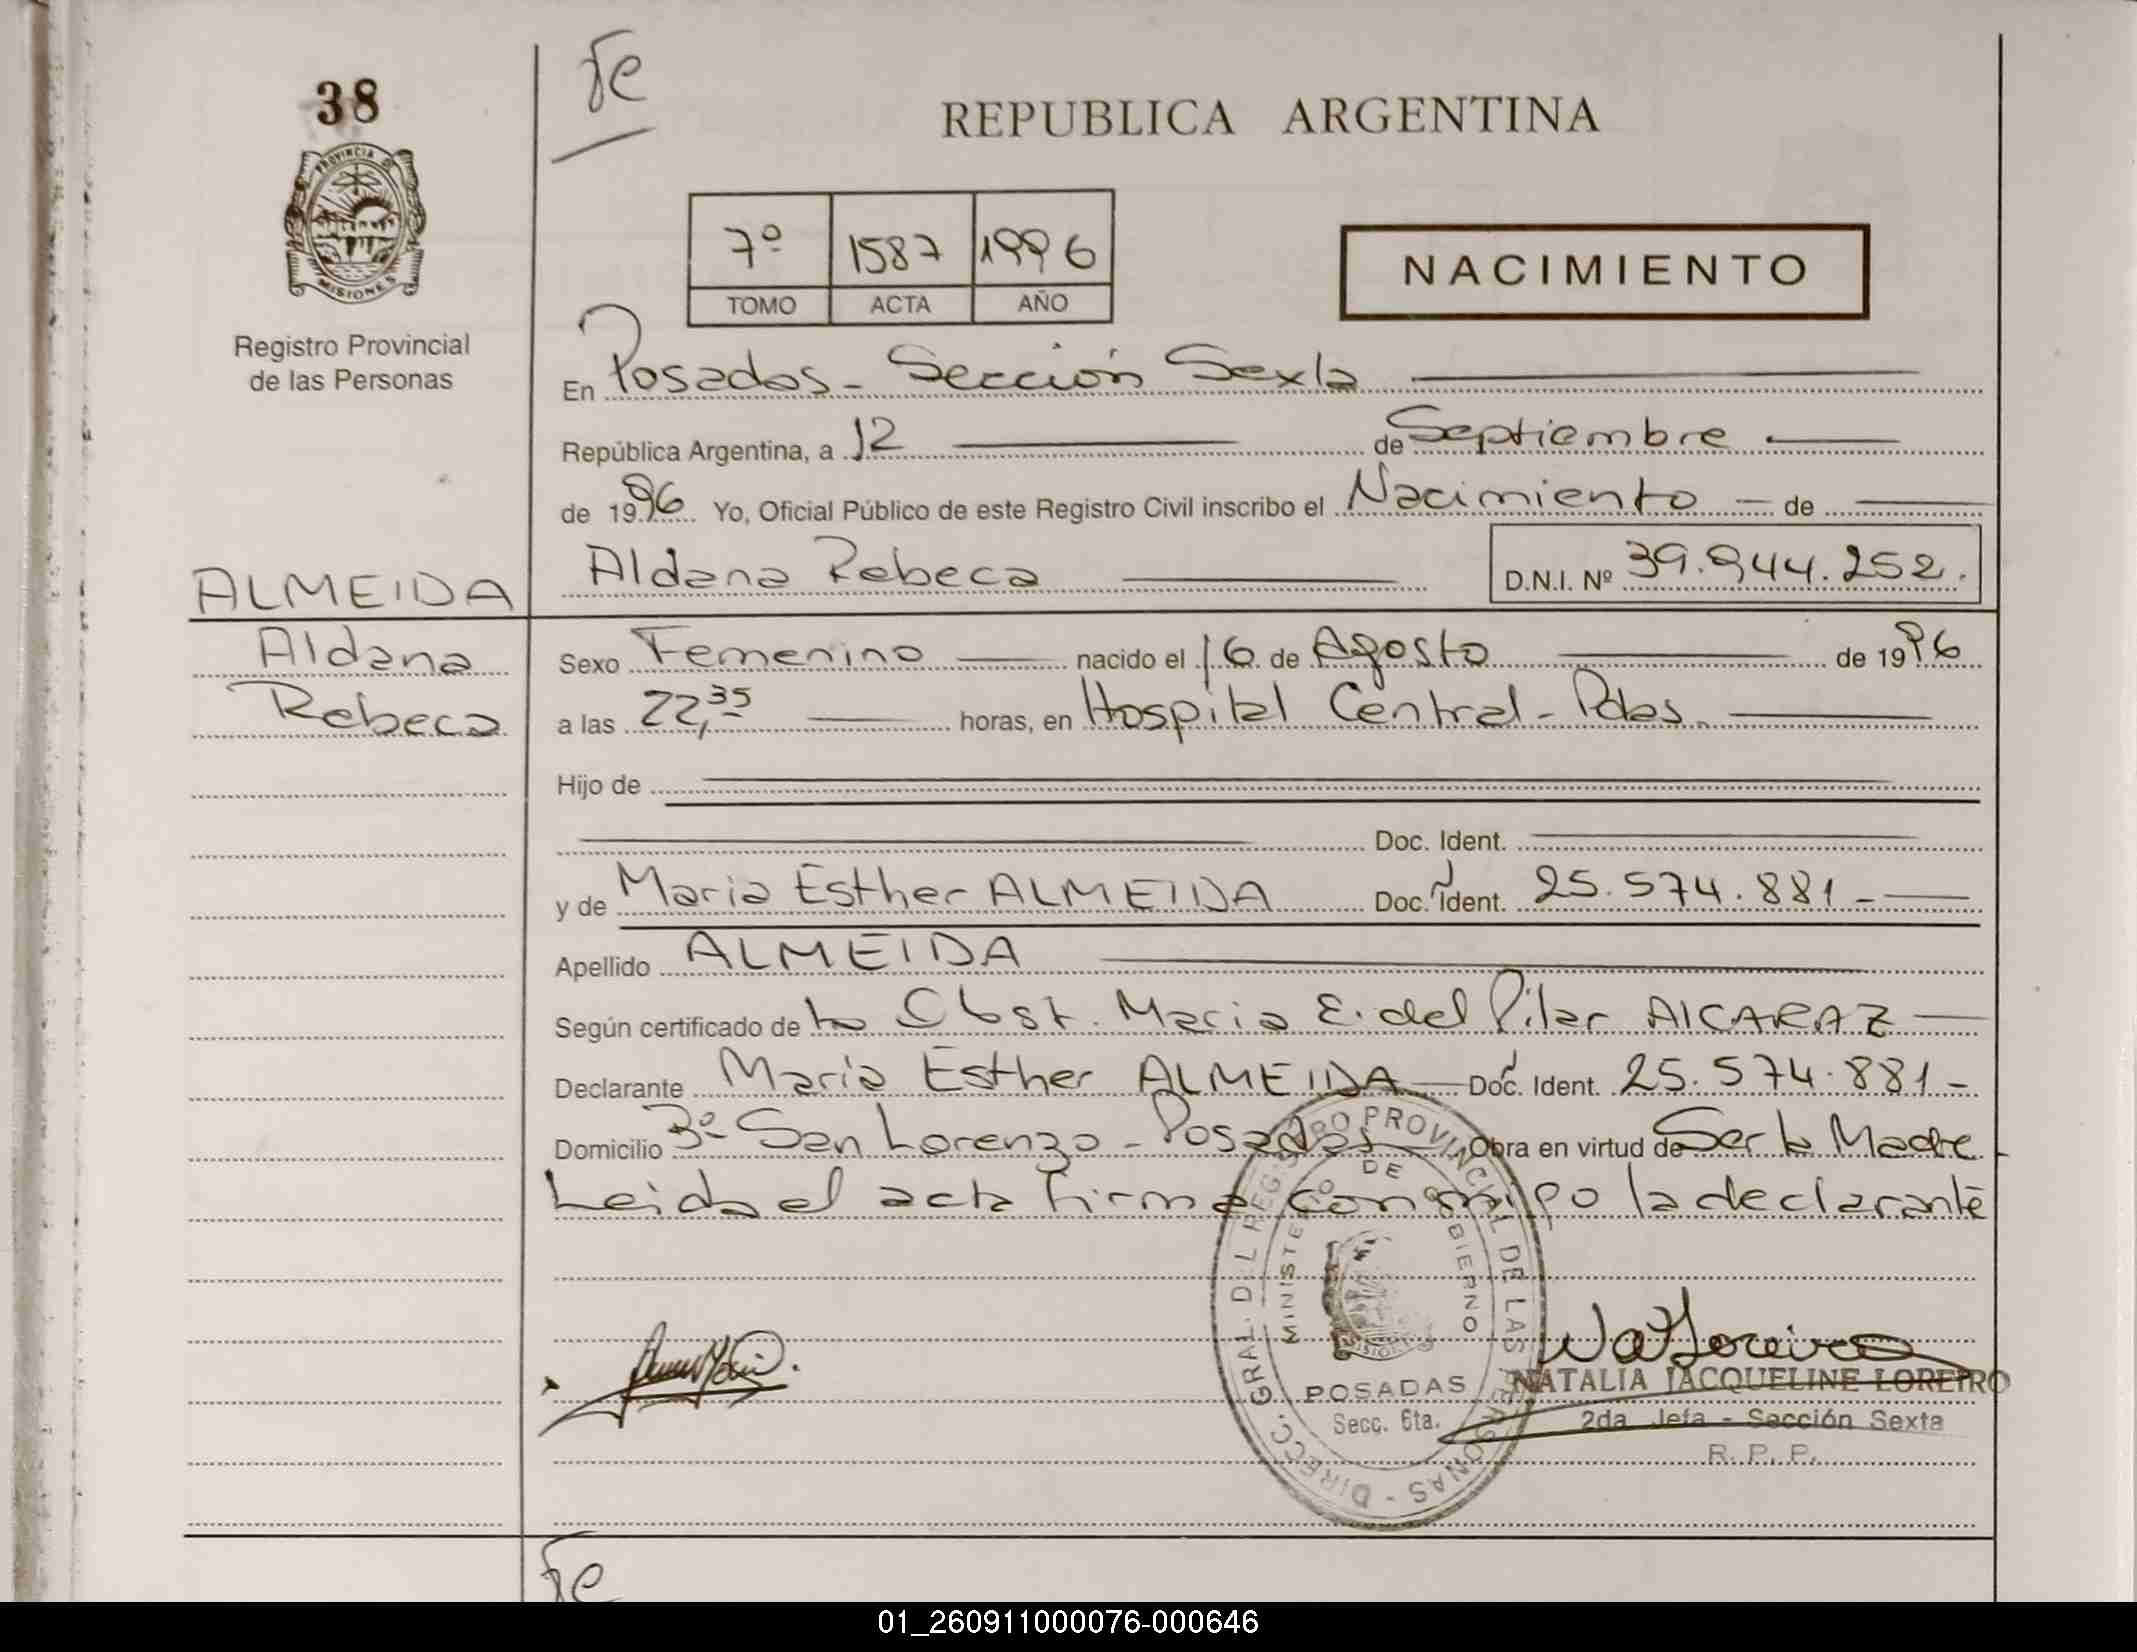 38
Fe
REPUBLICA ARGENTINA
PROVINCIA DE MISIONES
Registro Provincial
de las Personas
7º 1587 1996
TOMO ACTA AÑO
NACIMIENTO
En Posadas - Sección Sexta
República Argentina, a 12 de Septiembre
de 1996 Yo, Oficial Público de este Registro Civil inscribo el Nacimiento de
Aldana Rebeca D.N.I. Nº 39.944.252.
ALMEIDA
Aldana
Rebeca
Sexo Femenino nacido el 16 de Agosto de 1996
a las 22,35 horas, en Hospital Central - Pdas.
Hijo de
Doc. Ident.
y de Maria Esther ALMEIDA Doc. Ident. 25.574.881 -
Apellido ALMEIDA
Según certificado de la Obst. Maria E. del Pilar AlCARAZ
Declarante Maria Esther ALMEIDA Doc. Ident. 25.574.881 -
Domicilio 3º San Lorenzo - Posadas Obra en virtud de Ser la Madre -
Leida el acta firma conmigo la declarante
DIRECC. GRAL. DEL REGISTRO PROVINCIAL DE LAS PERSONAS -
MINISTERIO DE GOBIERNO
MISIONES
POSADAS
Secc. 6ta.
NATALIA JACQUELINE LOREIRO
2da Jefa - Sección Sexta
R. P. P.
Fe
01_260911000076-000646